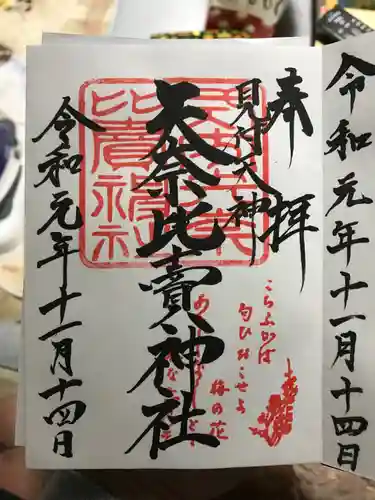 令和元年十一月十四日
奉拝
見付天神
矢奈比賣神社
こちふかは
匂ひおこせよ
梅の花
令和元年十一月十四日